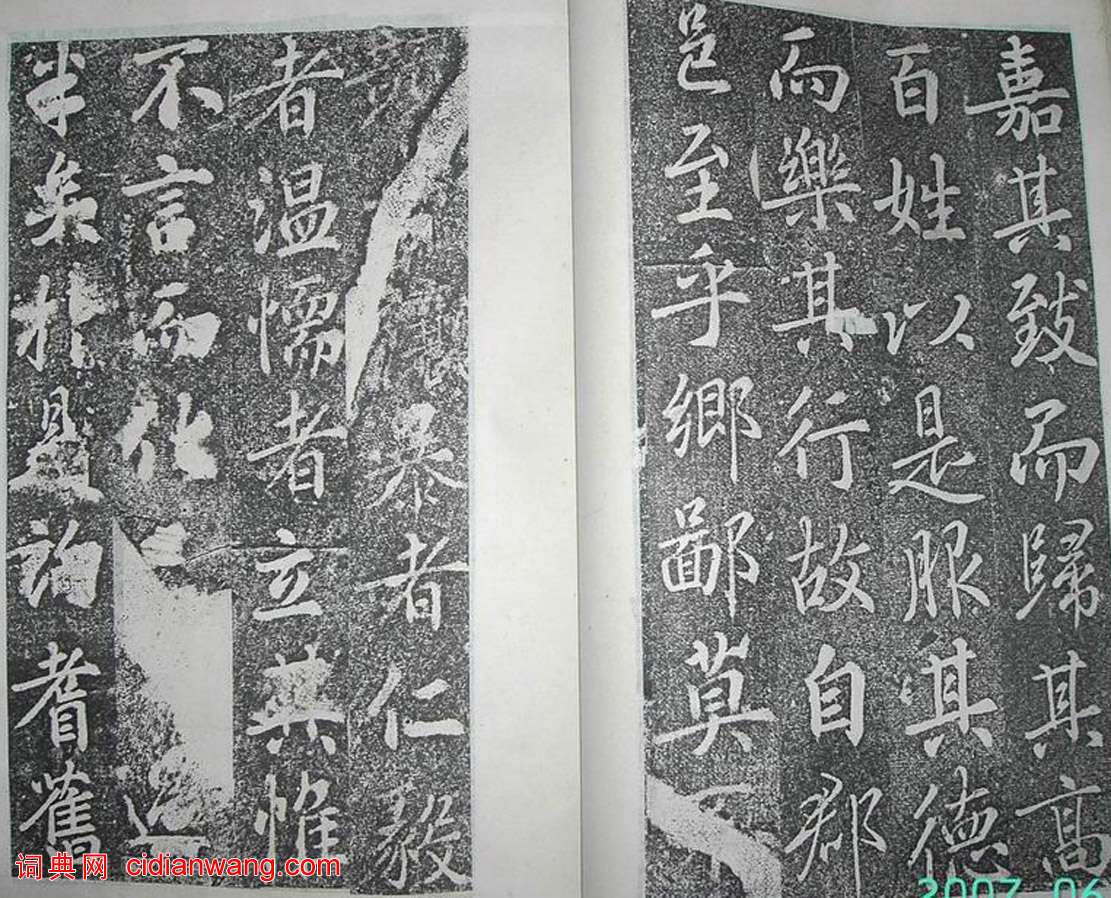 嘉其致而歸其高
百姓以是服其德
而樂其行故自郡
邑至乎鄉鄙莫
暴者仁毅
者温懦者立無惟
不言而化
半矣於是詢耆舊
词典网 cidianwang.com
2007 06